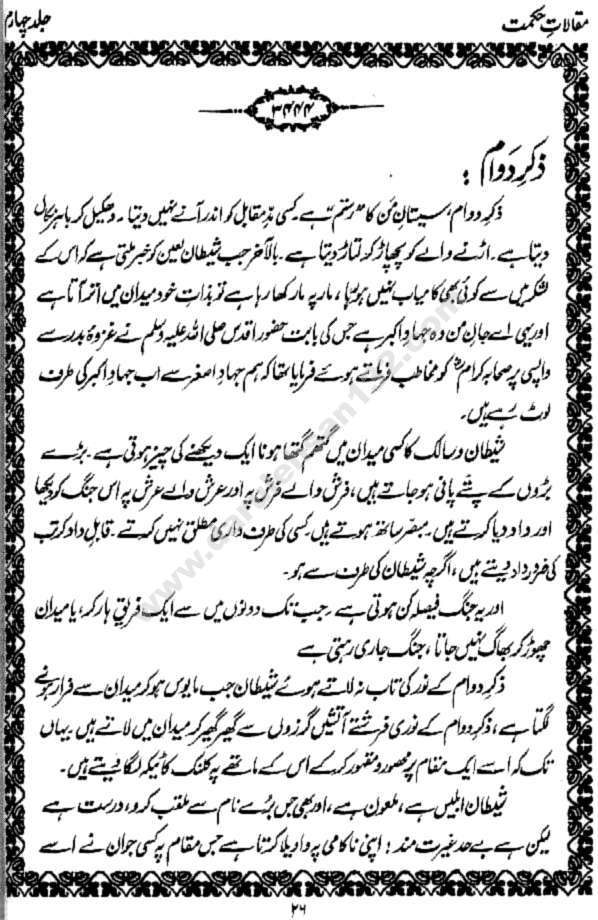 مقالاتِ حکمت
جلد چہارم
۳۴۴۴
ذکرِ دوام :
ذکرِ دوام، سیستانِ من کا رستم ہے۔ کسی مدِّ مقابل کو اندر آنے نہیں دیتا۔ دھکیل کر باہر نکال
دیتا ہے۔ اڑنے والے کو پچھاڑ کر لتاڑ دیتا ہے۔ بالآخر جب شیطان لعین کو خبر ملتی ہے کہ اس کے
لشکر میں سے کوئی بھی کامیاب نہیں ہو رہا، مار پہ مار کھا رہا ہے تو بذاتِ خود میدان میں اتر آتا ہے
اور یہی اے جانِ من وہ جہادِ اکبر ہے جس کی بابت حضور اقدس صلی اللہ علیہ وسلم نے غزوۂ بدر سے
واپسی پر صحابہ کرامؓ کو مخاطب فرماتے ہوئے فرمایا تھا کہ ہم جہادِ اصغر سے اب جہادِ اکبر کی طرف
لوٹ رہے ہیں۔
شیطان و سالک کا کسی میدان میں گتھم گتھا ہونا ایک دیکھنے کی چیز ہوتی ہے۔ بڑے
بڑوں کے پتّے پانی ہو جاتے ہیں، فرش والے فرش پہ اور عرش والے عرش پہ اس جنگ کو دیکھا
اور داد دیا کرتے ہیں۔ مبصر ساتھ ہوتے ہیں کسی کی طرف داری مطلق نہیں کرتے۔ قابلِ داد کرتب
کی ضرور داد دیتے ہیں، اگرچہ شیطان کی طرف سے ہو۔
اور یہ جنگ فیصلہ کن ہوتی ہے۔ جب تک دونوں میں سے ایک فریق ہار کر، یا میدان
چھوڑ کر بھاگ نہیں جاتا، جنگ جاری رہتی ہے
ذکرِ دوام کے نور کی تاب نہ لاتے ہوئے شیطان جب مایوس ہو کر میدان سے فرار ہونے
لگتا ہے، ذکرِ دوام کے نوری فرشتے آتشیں گرزوں سے گھیر گھیر کر میدان میں لاتے ہیں۔ یہاں
تک کہ اسے ایک مقام پر محصور و مقہور کر کے اس کے ماتھے پہ کلنک کا ٹیکہ لگا دیتے ہیں۔
شیطان ابلیس ہے، ملعون ہے، اور بھی جس بُرے نام سے ملقب کرو، درست ہے
لیکن ہے بے حد غیرت مند : اپنی ناکامی پہ واویلا کرتا ہے جس مقام پہ کسی جوان نے اسے
۲۶